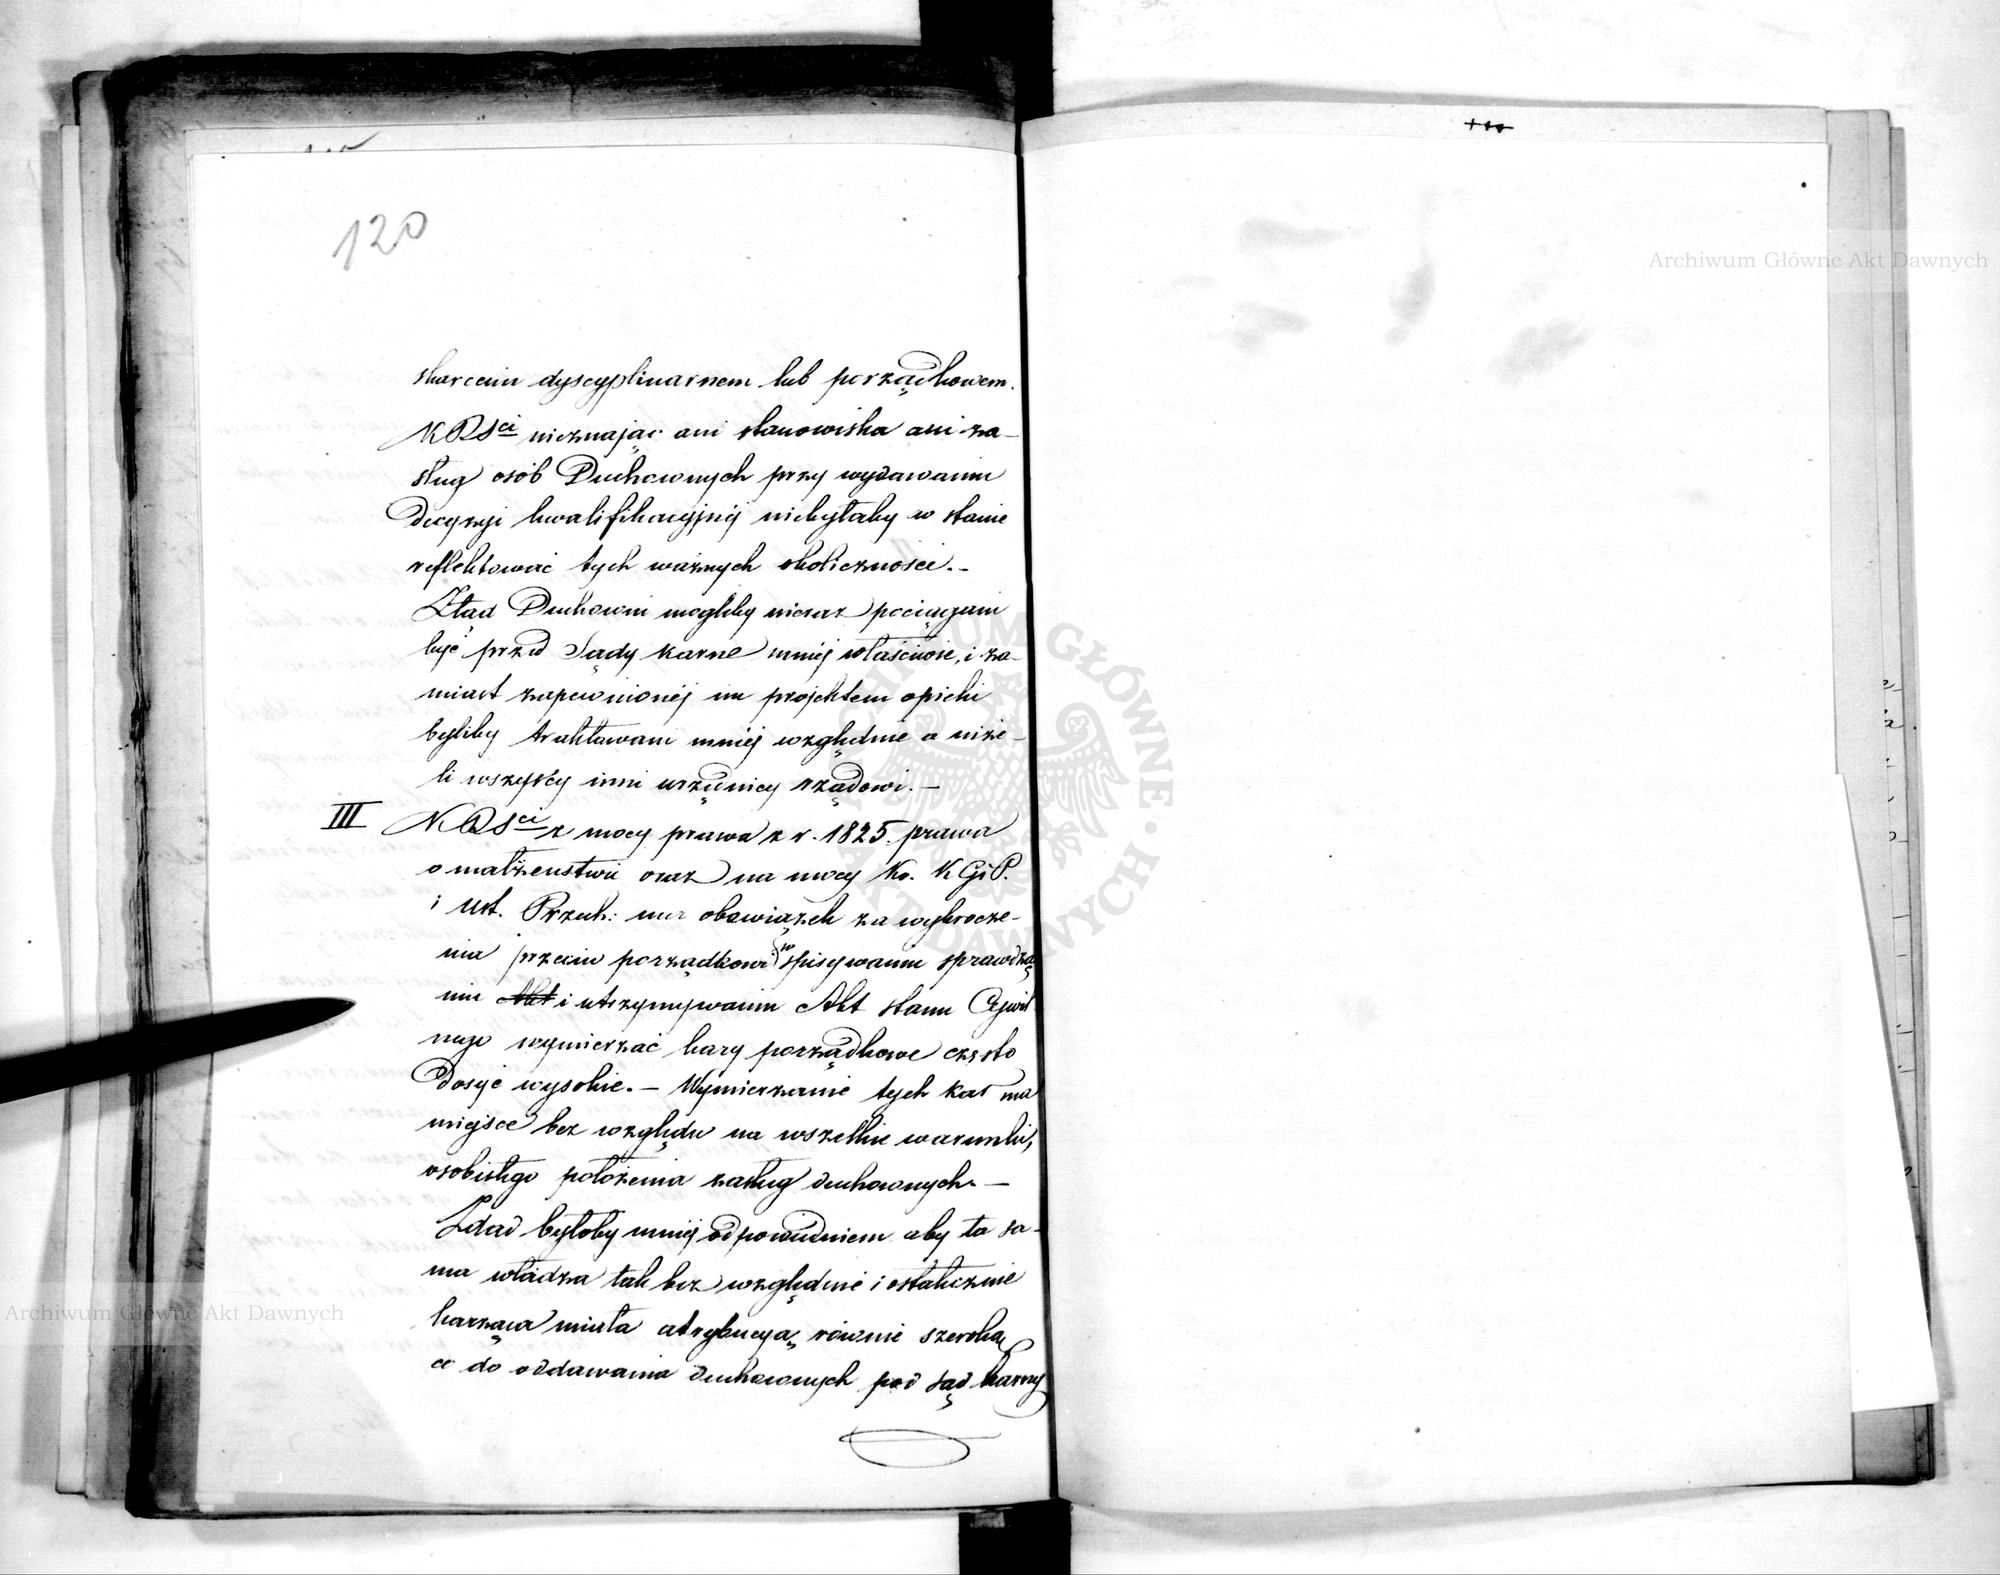 120
skarceniu dyscyplinarnem lub porządkowem.
KRSci nieznając ani stanowiska ani za-
sług osób Duchownych przy wydawaniu
Decyzyi kwalifikacyjnej niebyłaby w stanie
reflektować tych ważnych okoliczności.-
Ztąd Duchowni mogliby nieraz pociągani
być przed Sądy karne mniej właściwie, i za-
miast zapewnionéj im projektem opieki
byliby traktowani mniej względnie a niże-
li wszyscy inni urzędnicy rządowi.-
III KRSci z mocy prawa z r. 1825. prawa
o małżeństwie oraz na mocy Ko. K G i P.
i Ust. Przech: ma obowiązek za wykrocze-
nia przeciw porządkowi w spisywaniu sprawdza
niu Akt i utrzymywaniu Akt stanu Cywil
nego wymierzać kary porządkowe często
dosyć wysokie. - Wymierzanie tych kar ma
miejsce bez względu na wszelkie warunki,
osobistego położenia zasług duchownych. -
Zdać byłoby mniej odpowiedniem aby ta sa-
ma władza tak bez względnie i ostatecznie
karząca miała atrybucyą równie szeroką
co do oddawania duchownych pod sąd karny
Archiwum Główne Akt Dawnych
Archiwum Główne Akt Dawnych
ARCHIWUM GŁÓWNE AKT DAWNYCH